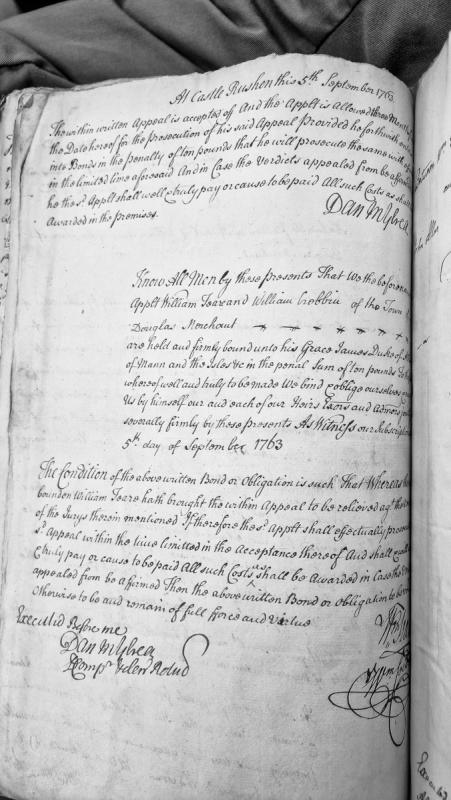 At Castle Rushen this 5th September 1763
The within written Appeal is accepted of And the Applt is Allowed three Months
the Date hereof for the prosecution of his said Appeal Provided he forthwith enter
into Bonds in the penalty of ten pounds that he will prosecute the same with
in the limited time aforesaid And in Case the Verdicts appealed from be affirmed
he the sd Applt shall well & truly pay or cause to be paid All such Costs as shall
Awarded in the premises.
Dan Mylrea
Know All Men by these presents That We the before
Applt William Teare and William Crebbin of the Town
Douglas Merchant
are held and firmly bound unto his Grace James Duke of
of Mann and the Isles &c in the penal Sum of ten pounds To
whereof well and truly to be made We bind & oblige ourselves
Us by himself our and each of our Heirs Exors and Admors
severally firmly by these presents As Witness our Subscriptions
5th day of September 1763
The Condition of the above written Bond or Obligation is such That Whereas
bounden William Teare hath brought the within Appeal to be relieved agt the
of the Jurys therein mentioned If therefore the sd Applt shall effectually prosecute
sd Appeal within the time limitted in the Acceptance thereof And shall
& truly pay or cause to be paid All such Costs as shall be Awarded in Case the
appealed from be affirmed Then the above written Bond or Obligation to be
Otherwise to be and remain of full fforce and Virtue
Executed Before me
Dan Mylrea
Wm